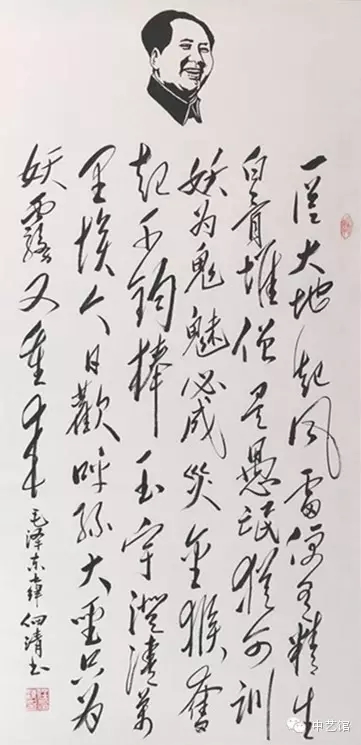 一從大地起风雷便有精生
白骨堆僧是愚氓犹可训
妖为鬼魅必成災金猴奮
起千钧棒玉宇澄清萬
里埃今日歡呼孙大聖只为
妖霧又重来
毛泽东七律 书
中艺馆